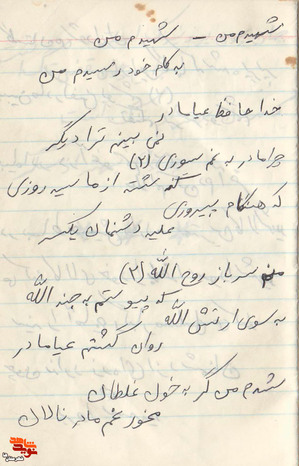 شهیدم من – شهیدم من
به کام خود رسیدم من
خدا حافظ عیا مادر
نمی بینم ترا دیگر
چرا مادر به غم سوزی (۲)
گذشته از ما سیه روزی
که هنگام پیروزی
علیه دشمنان یکسر
منم سرباز روح الله (۲)
که پیوستم به جند الله
به سوی ارتش الله
روان گشتم عیا مادر
شدم من گر به خون غلطان
مخور غم مادر نالان